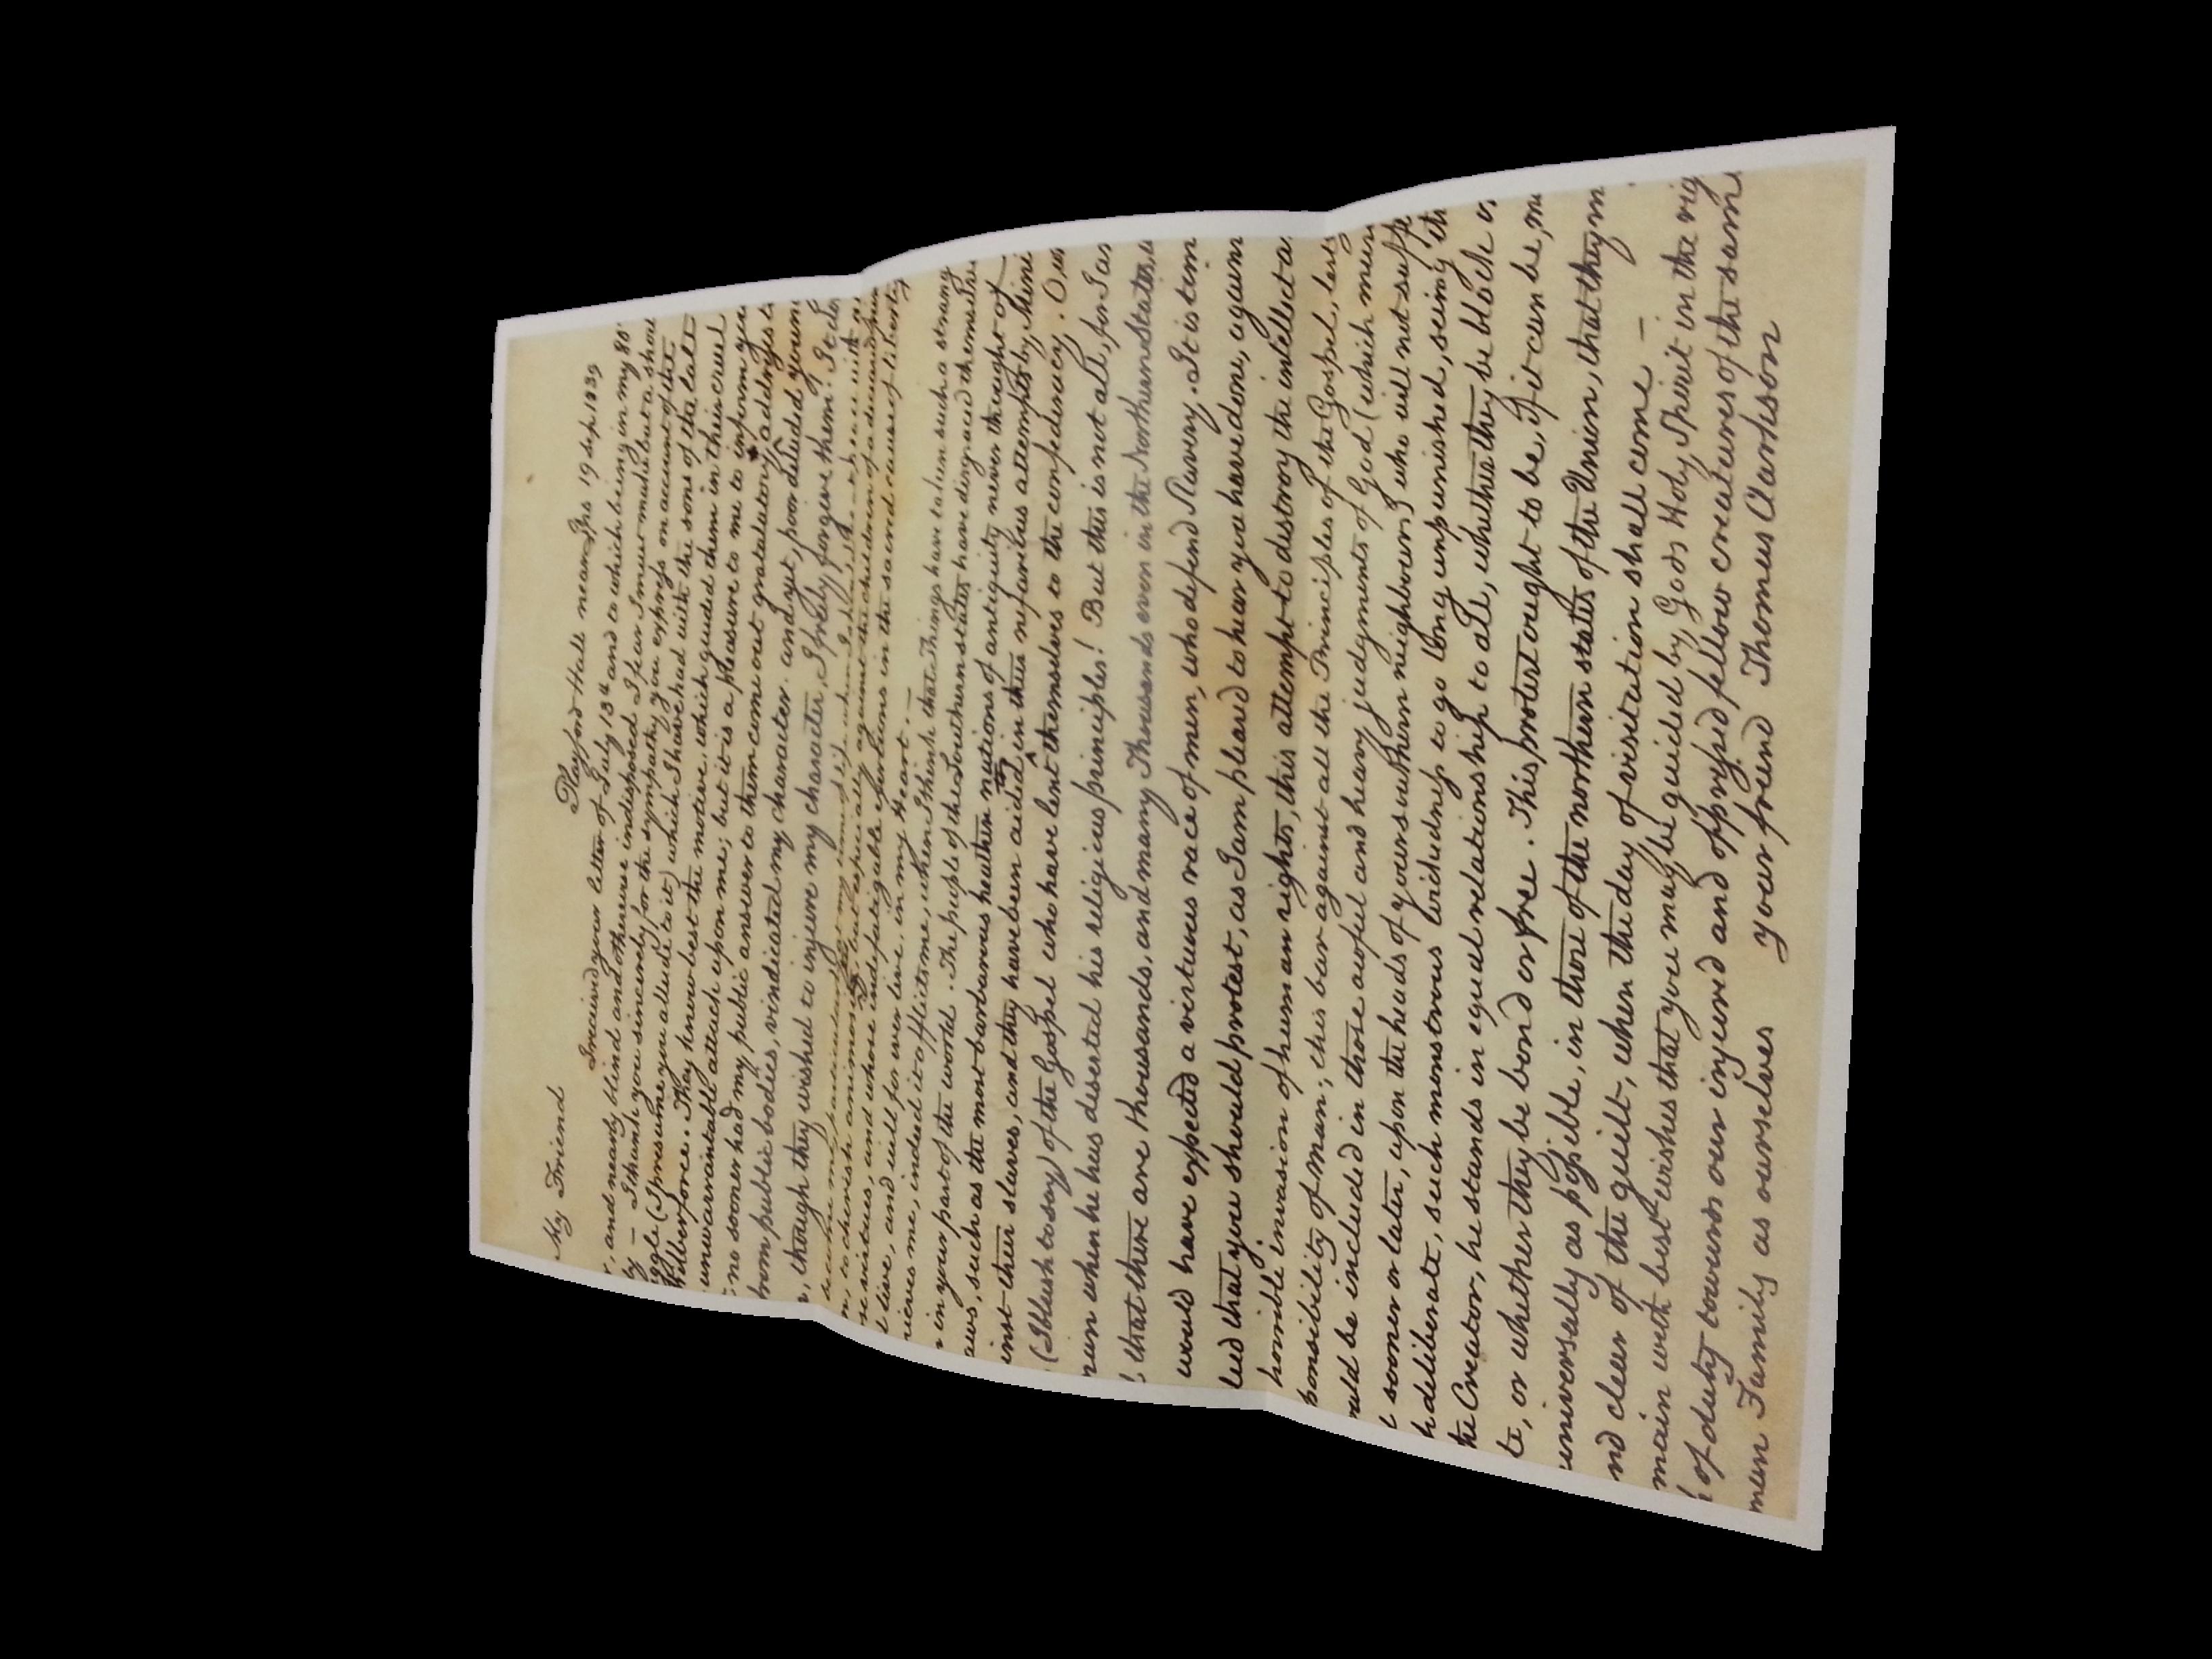 Playford Hall near Ips 19 Sep. 1839
My Friend
I received your letter of July 13th and to which being in my 80
, and nearly blind and otherwise indisposed I fear I must make but a shor
by — I thank you sincerely for the sympathy you express on account of the
(I presume you allude to it) which I have had with the sons of the late
Wilberforce. They know best the motive, which guided them in their cruel
unwarrantable attack upon me; but it is a pleasure to me to inform you
no sooner had my public answer to them come out gratulatory addresses to
from public bodies, vindicated my character. and yet, poor deluded youn
, though they wished to injure my character, I freely forgive them. It do
become me, particularly at my time of life when
, to cherish animosity, but especially against the children of a deceased
se virtues, and whose indefatigable exertions in the sacred cause of liberty
d live, and will for ever live, in my Heart. —
rieves me, indeed it afflicts me, when I think that Things have taken such a strang
n in your part of the world. The people of the Southern states have disgraced themselve
aws, such as the most barbarous heathen nations of antiquity never thought of
inst their slaves, and they have been aided in their nefarious attempts by Mini
(I blush to say) of the Gospel who have lent themselves to the confederacy. O w
man when he has deserted his religious principles! But this is not all, for I as
that there are thousands, and many Thousands even in the Northern States, w
would have expected a virtuous race of men, who defend Slavery. It is tim
led that you should protest, as I am pleased to hear you have done, again
horrible invasion of human rights, this attempt to destroy the intellect a
ponsibility of man; this bar against all the Principles of the Gospel, les
uld be included in those awful and heavy judgments of God (which mus
sooner or later, upon the heads of your southern neighbours) who will not suffe
h deliberate, such monstrous wickedness to go long unpunished, seeing th
the Creator, he stands in equal relationship to all, whether they be black o
te, or whether they be bond or free. This protest ought to be, if it can be, m
universally as possible, in those of the northern states of the Union, that they m
nd clear of the guilt, when the day of visitation shall come —
main with best wishes that you may be guided by Gods Holy Spirit in the rig
of duty towards our injured and oppressed fellow creatures of the same
man Family as ourselves your friend Thomas Clarkson